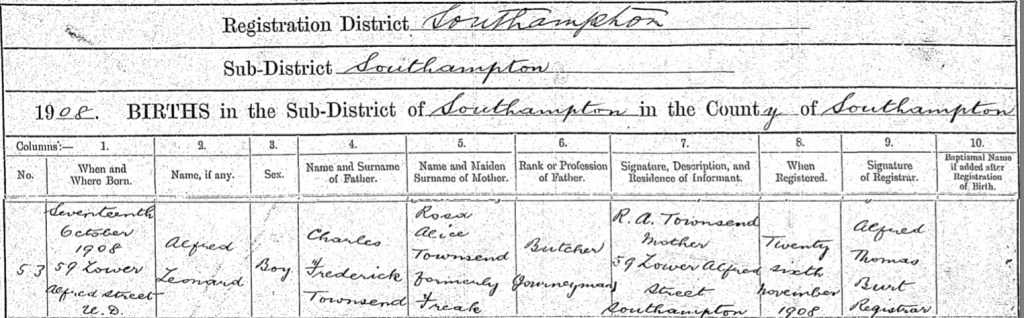 Registration District Southampton
Sub-District Southampton
1908. BIRTHS in the Sub-District of Southampton in the County of Southampton
Columns:— 1. 2. 3. 4. 5. 6. 7. 8. 9. 10.
No. When and Where Born. Name, if any. Sex. Name and Surname of Father. Name and Maiden Surname of Mother. Rank or Profession of Father. Signature, Description, and Residence of Informant. When Registered. Signature of Registrar. Baptismal Name if added after Registration of Birth.
53
Seventeenth
October
1908
59 Lower
Alfred Street
U.D.
Alfred
Leonard
Boy
Charles
Frederick
Townsend
Rosa
Alice
Townsend
formerly
Freak
Butcher
Journeyman
R. A. Townsend
Mother
59 Lower Alfred
Street
Southampton
Twenty
sixth
November
1908
Alfred
Thomas
Burt
Registrar